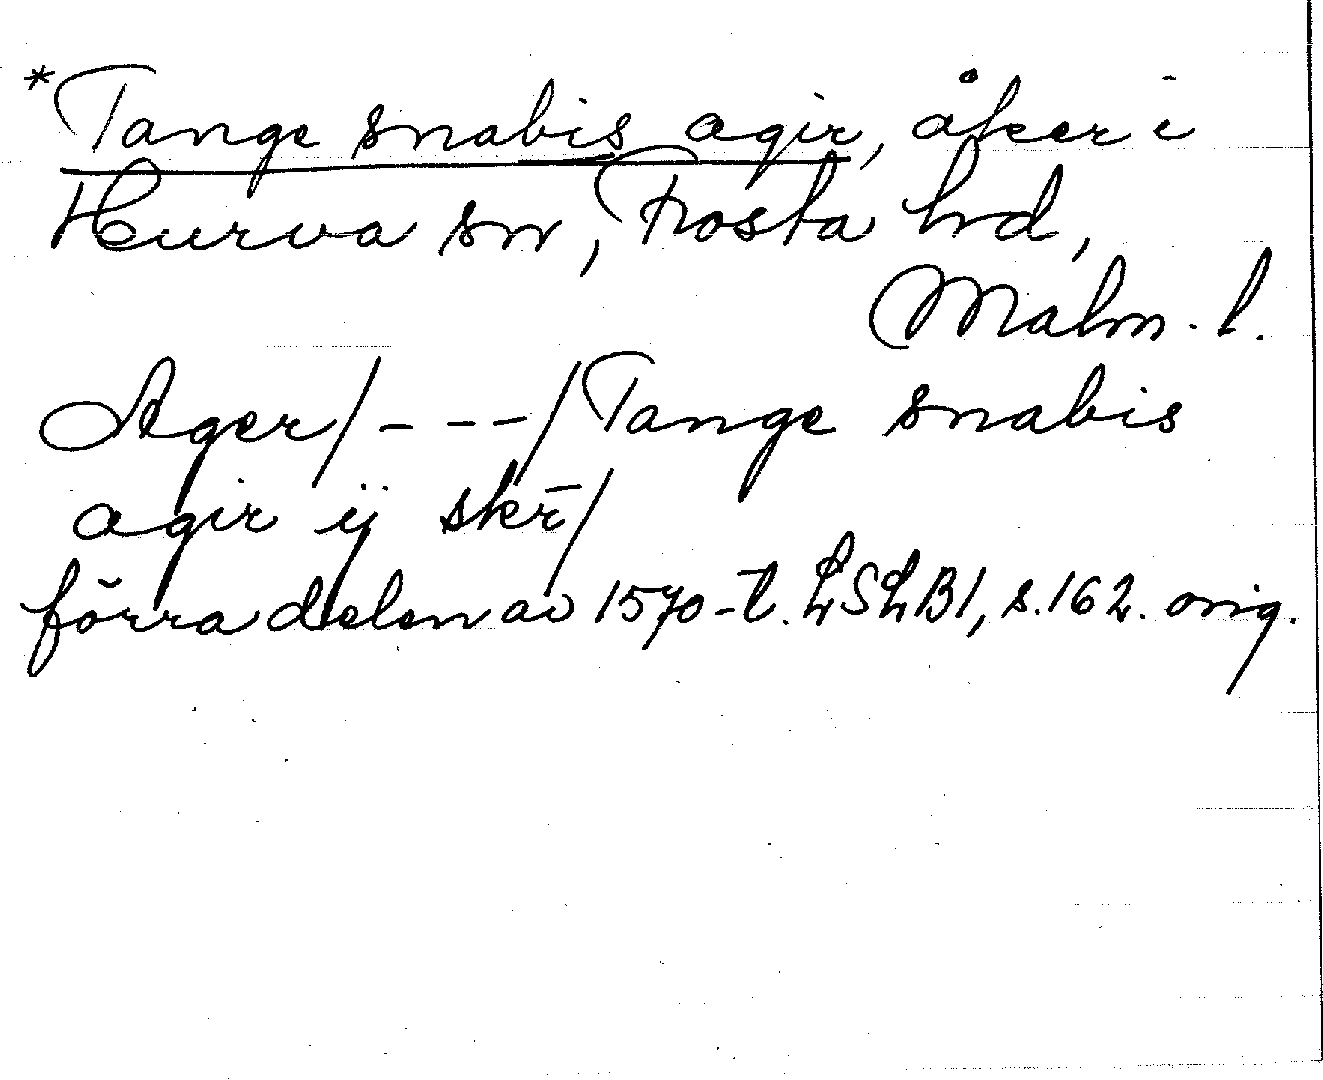 *Tange snabis agir, åker i
Hurva sn, Frosta hd,
Malm. l.
Ager/---/Tange snabis
agir ij skr̄/
förra delen av 1570-t. LSLB1, s.162. orig.